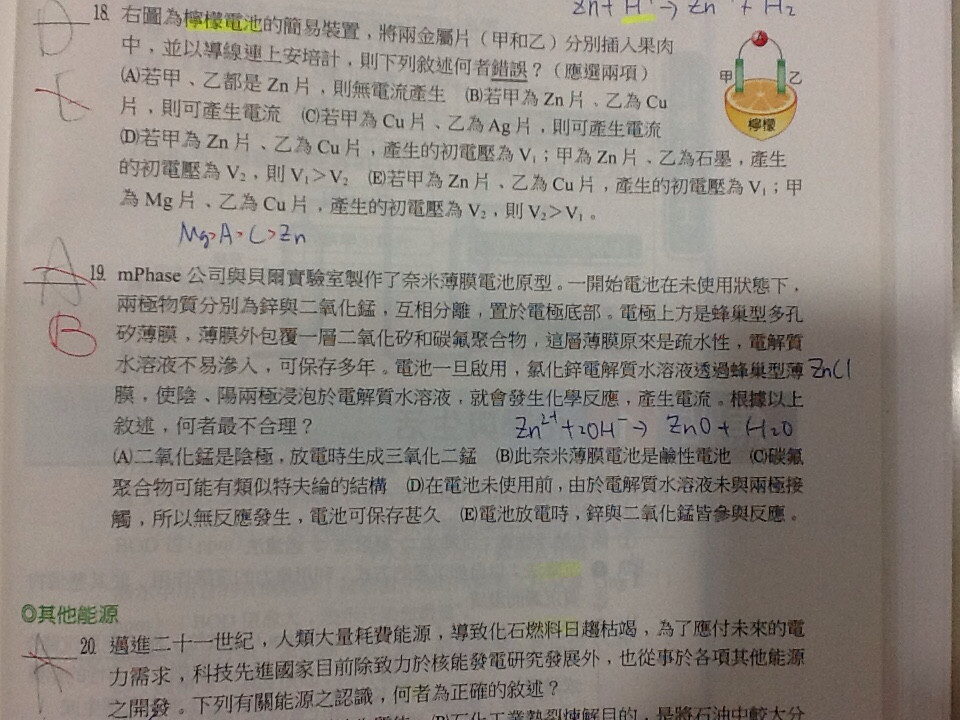 Zn + H⁺ → Zn + H₂
18. 右圖為檸檬電池的簡易裝置，將兩金屬片（甲和乙）分別插入果肉
中，並以導線連上安培計，則下列敘述何者錯誤？（應選兩項）
(A)若甲、乙都是 Zn 片，則無電流產生 (B)若甲為 Zn 片、乙為 Cu
片，則可產生電流 (C)若甲為 Cu 片、乙為 Ag 片，則可產生電流
(D)若甲為 Zn 片、乙為 Cu 片，產生的初電壓為 V₁；甲為 Zn 片、乙為石墨，產生
的初電壓為 V₂，則 V₁＞V₂ (E)若甲為 Zn 片、乙為 Cu 片，產生的初電壓為 V₁；甲
為 Mg 片、乙為 Cu 片，產生的初電壓為 V₂，則 V₂＞V₁。
D
A
甲
乙
檸檬
Mg>A>C>Zn
A
B
19. mPhase 公司與貝爾實驗室製作了奈米薄膜電池原型。一開始電池在未使用狀態下，
兩極物質分別為鋅與二氧化錳，互相分離，置於電極底部。電極上方是蜂巢型多孔
矽薄膜，薄膜外包覆一層二氧化矽和碳氟聚合物，這層薄膜原來是疏水性，電解質
水溶液不易滲入，可保存多年。電池一旦啟用，氯化鋅電解質水溶液透過蜂巢型薄
ZnCl
膜，使陰、陽兩極浸泡於電解質水溶液，就會發生化學反應，產生電流。根據以上
敘述，何者最不合理？
Zn²⁺+2OH⁻→ ZnO + H₂O
(A)二氧化錳是陰極，放電時生成三氧化二錳 (B)此奈米薄膜電池是鹼性電池 (C)碳氟
聚合物可能有類似特夫綸的結構 (D)在電池未使用前，由於電解質水溶液未與兩極接
觸，所以無反應發生，電池可保存甚久 (E)電池放電時，鋅與二氧化錳皆參與反應。
◎其他能源
A
20. 邁進二十一世紀，人類大量耗費能源，導致化石燃料日趨枯竭，為了應付未來的電
力需求，科技先進國家目前除致力於核能發電研究發展外，也從事於各項其他能源
之開發。下列有關能源之認識，何者為正確的敘述？
(B)石化工業熱裂煉解目的，是將石油中較大分